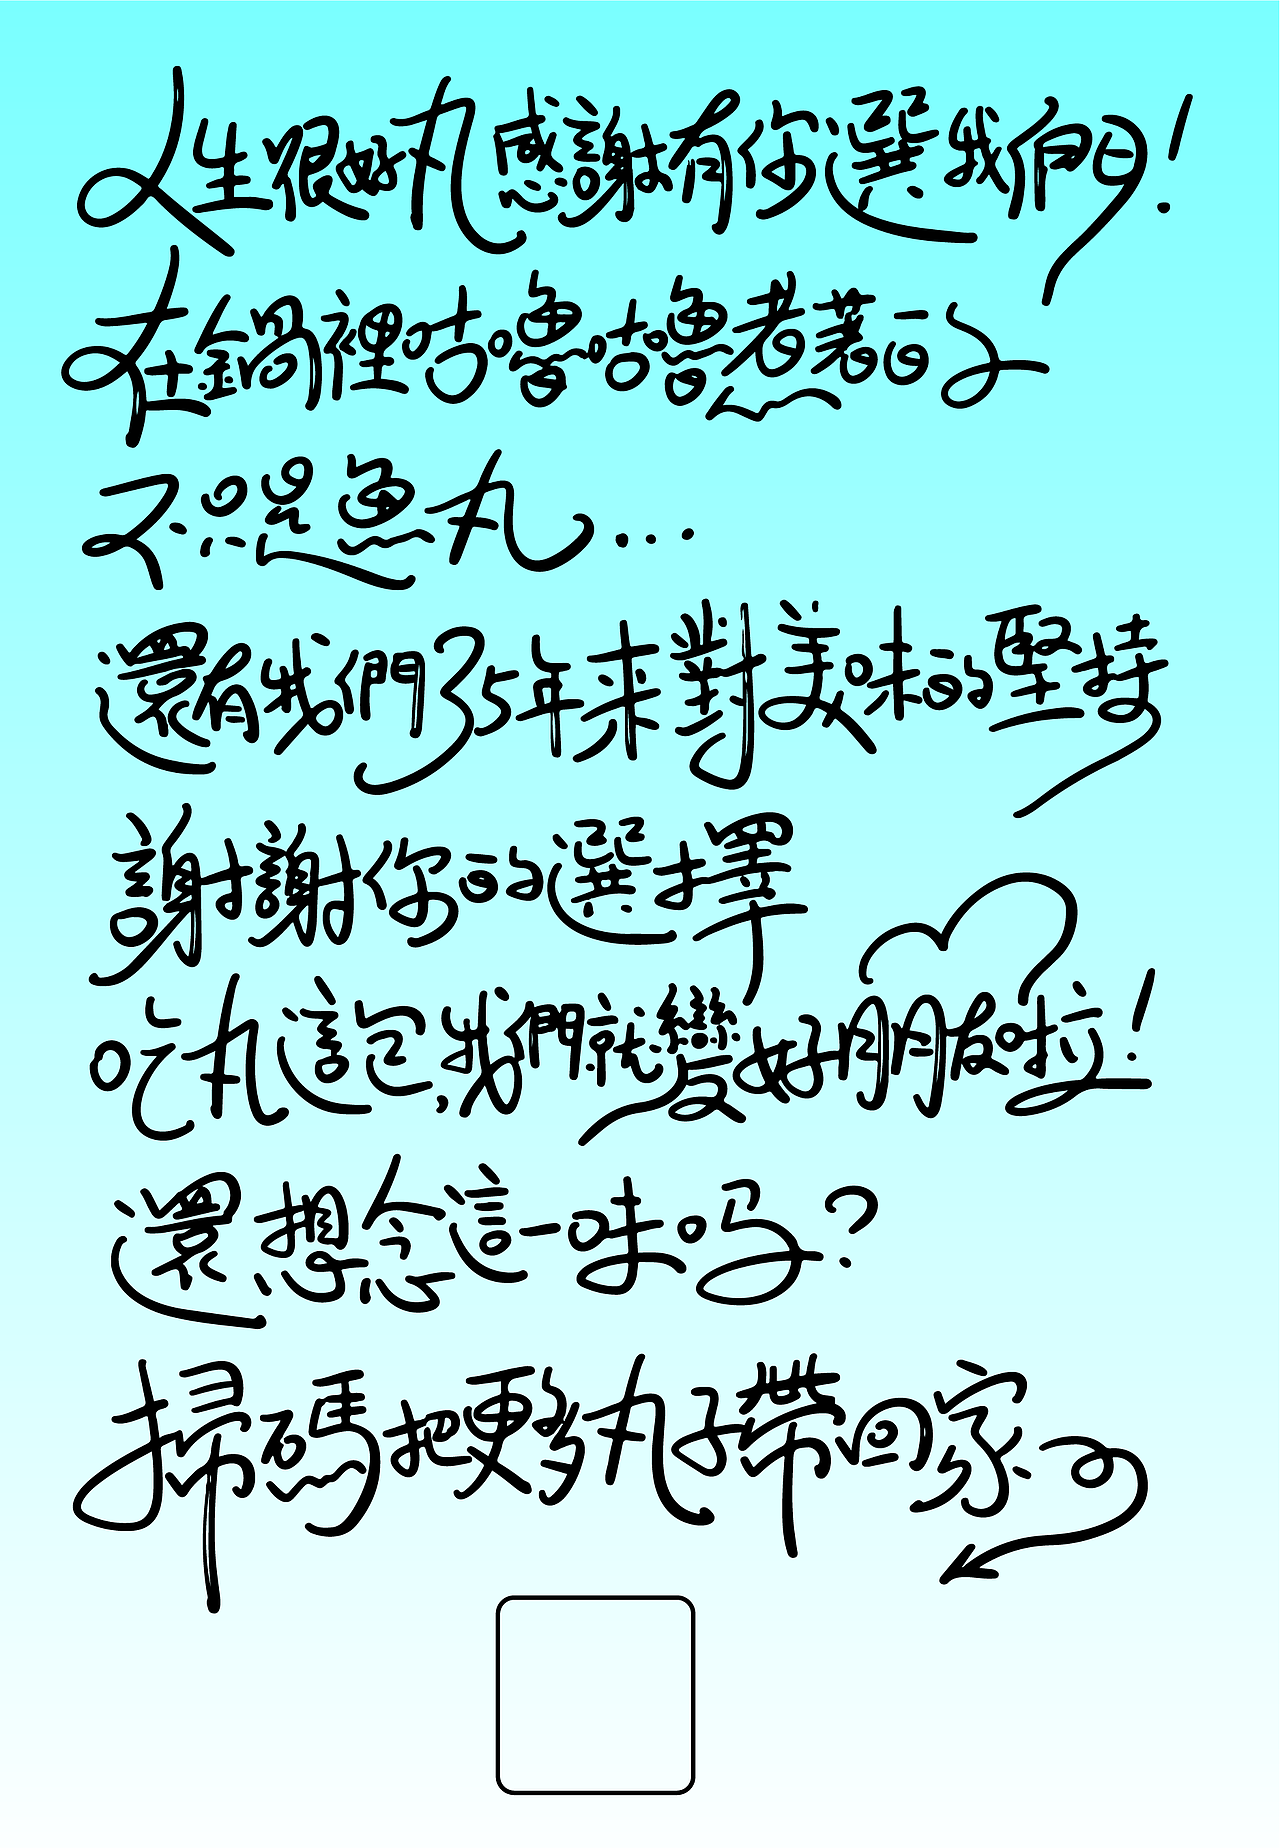 人生很好丸感謝有你選我們!
在鍋裡咕嚕咕嚕煮著的
不只是魚丸...
還有我們35年來對美味的堅持
謝謝你的選擇
吃丸這包,我們就變好朋友啦!
還想念這一味吗?
掃碼把更多丸子帶回家